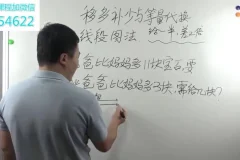 课程加微信
54622
移多补少与等量代换
线段图法 给一半,差一半
爸比妈妈多11块宝石,要
爸爸比妈妈多3块,需给几块?